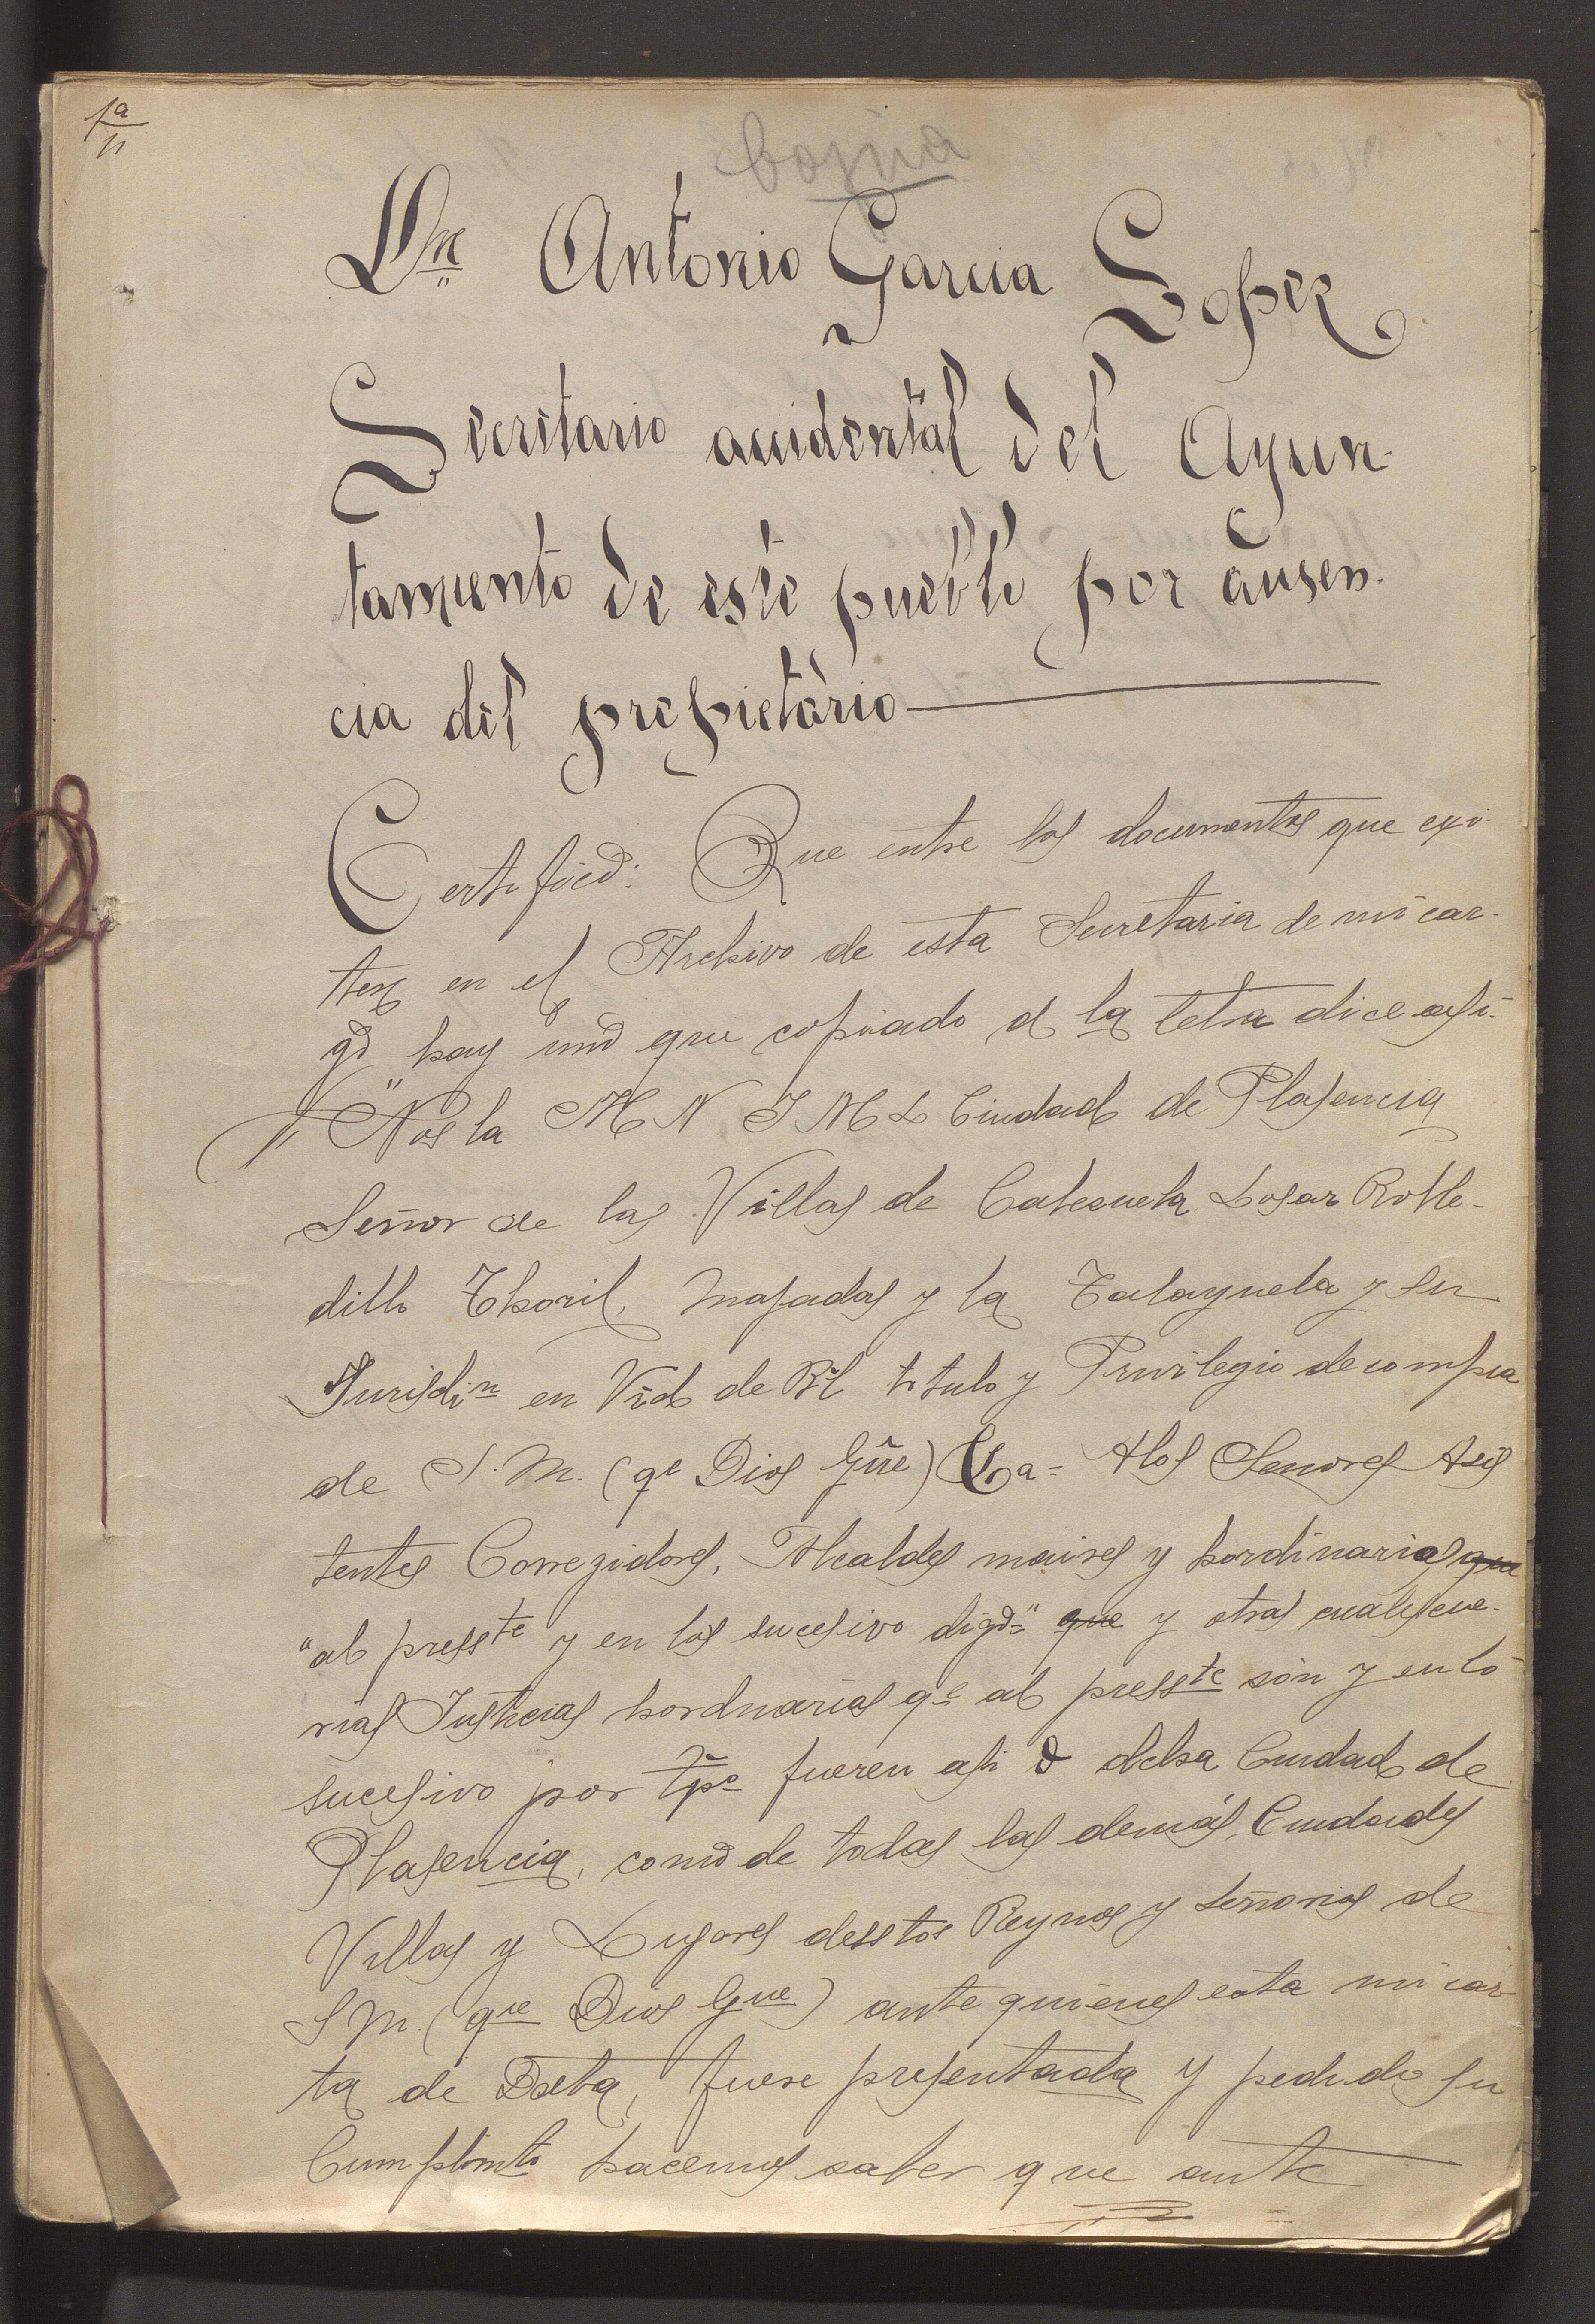 1ª
11
Copia
Dn Antonio Garcia Lopez
Secretario accidental del Ayun-
tamiento de este pueblo por ausen-
cia del propietario
Certifico: Que entre los documentos que exis-
ten en el Archivo de esta Secretaria de mi car-
go hay uno que copiado a la letra dice asi:
"Nos la M N I M L Ciudad de Plasencia
Señor de las Villas de Cabezuela Losar Roble-
dillo Thoril, Majadas y la Talayuela y su
Jurisdin en Vid de Rl titulo y Privilegio de compra
de S. M. (qe Dios Gue) Ca= Alos Senores Asis
tentes Corregidores, Alcaldes maires y hordinarios que
"al presste y en los sucesivo digo=" que y otras cualescue-
rias Justicias hordnarias qe al presste són y en lo
sucesivo por tpo fueren asi d dcha Ciudad de
Plasencia, como de todas las demás, Ciudades
Villas y Lugares desstos Reynos y señorios de
S M. (que Dios Gue) ante quienes esta mi car-
ta de Data, fuere presentada y pedido su
Cumplimto hacemos saber que ante